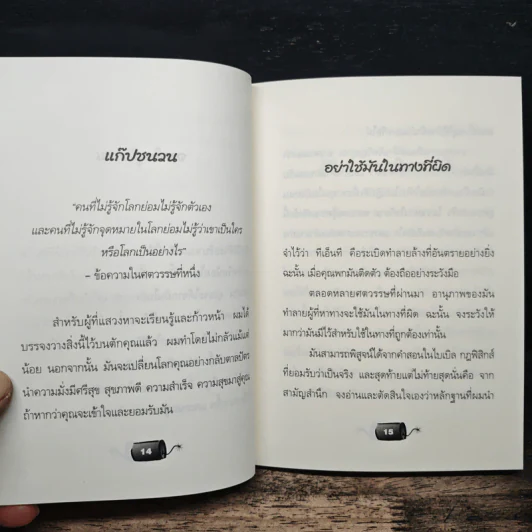 แก๊ปชนวน
“คนที่ไม่รู้จักโลกย่อมไม่รู้จักตัวเอง
และคนที่ไม่รู้จักจุดหมายในโลกย่อมไม่รู้ว่าเขาเป็นใคร
หรือโลกเป็นอย่างไร”
– ข้อความในศตวรรษที่หนึ่ง
สำหรับผู้ที่แสวงหาจะเรียนรู้และก้าวหน้า ผมได้
บรรจงวางสิ่งนี้ไว้บนตักคุณแล้ว ผมทำโดยไม่กลัวแม้แต่
น้อย นอกจากนั้น มันจะเปลี่ยนโลกคุณอย่างกลับตาลปัตร
นำความมั่งมีศรีสุข สุขภาพดี ความสำเร็จ ความสุขมาสู่คุณ
ถ้าหากว่าคุณจะเข้าใจและยอมรับมัน
14
อย่าใช้มันในทางที่ผิด
จำไว้ว่า ทีเอ็นที คือระเบิดทำลายล้างที่อันตรายอย่างยิ่ง
ฉะนั้น เมื่อคุณพกมันติดตัว ต้องถืออย่างระวังมือ
ตลอดหลายศตวรรษที่ผ่านมา อานุภาพของมัน
ทำลายผู้ที่หาทางจะใช้มันในทางที่ผิด ฉะนั้น จงระวังให้
มากว่ามันมีไว้สำหรับใช้ในทางที่ถูกต้องเท่านั้น
มันสามารถพิสูจน์ได้จากคำสอนในไบเบิล กฎฟิสิกส์
ที่ยอมรับว่าเป็นจริง และสุดท้ายแต่ไม่ท้ายสุดนั่นคือ จาก
สามัญสำนึก จงอ่านและตัดสินใจเองว่าหลักฐานที่ผมนำ
15